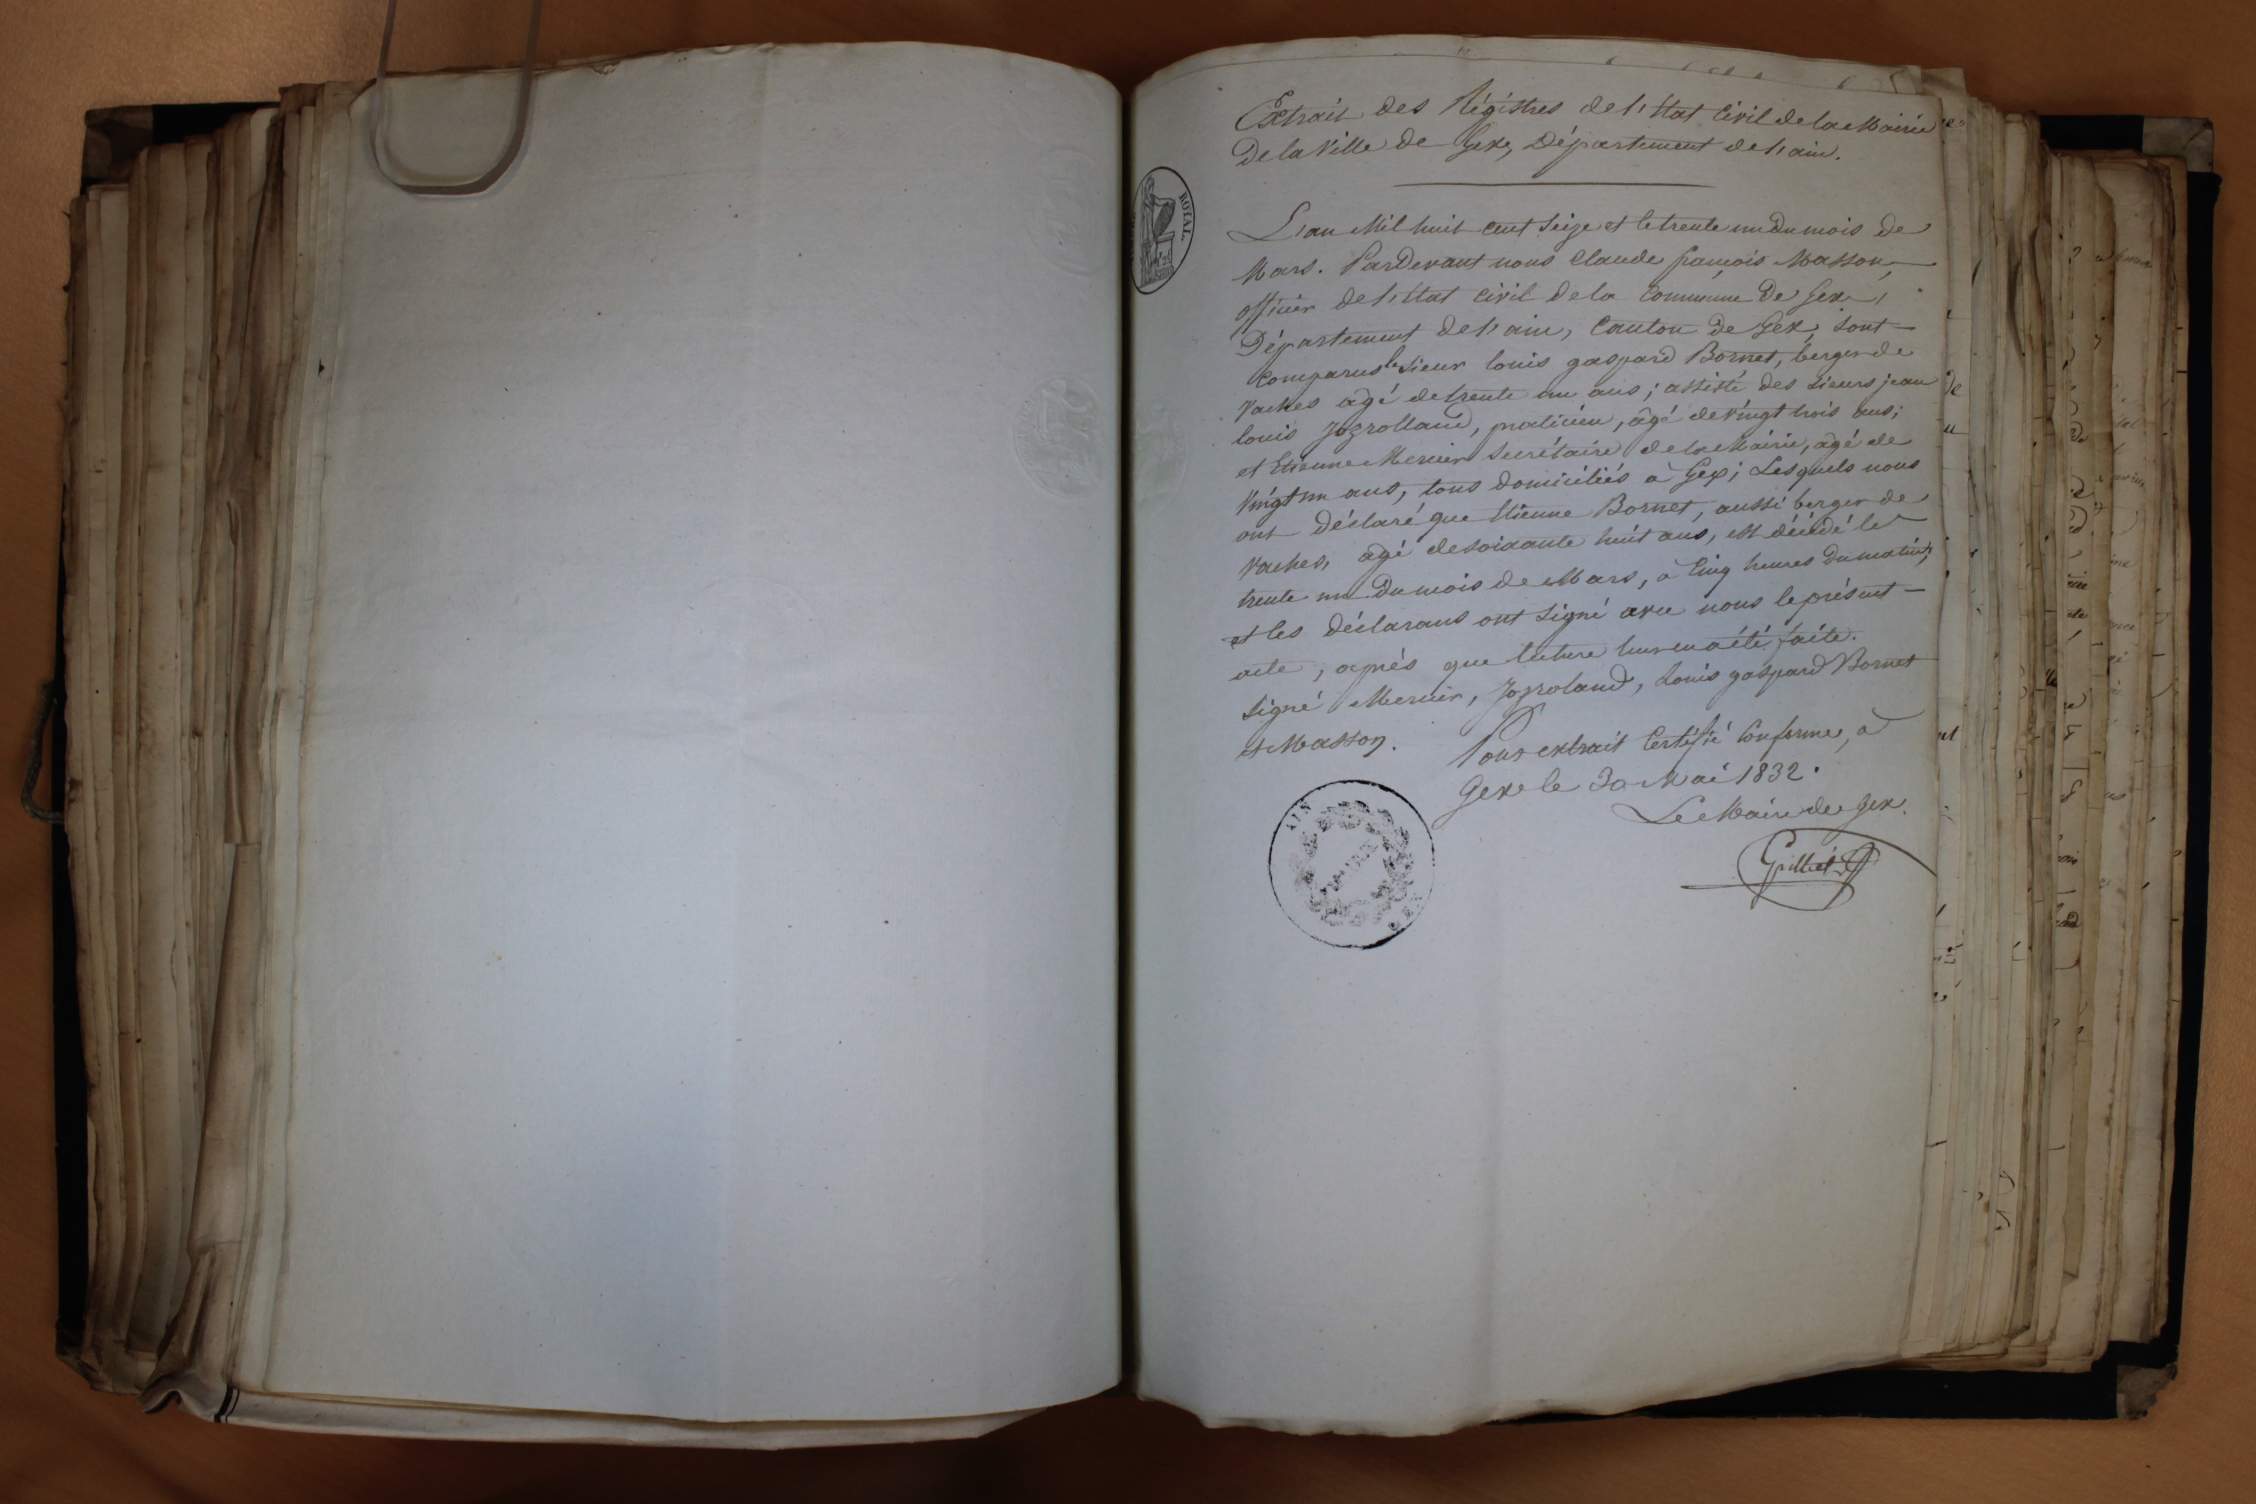 Extrait des Régistres de l'Etat Civil de la Mairie
De la Ville de Gex, Département de l'ain.
ROYAL.
L'an Mil huit cent Seize et le trente un Du mois de
Mars. Pardevant nous Claude françois Masson,
officier de l'Etat civil de la Commune De Gex,
Département de l'ain, Canton de Gex, sont
Comparus le Sieur louis gaspard Bornet, berger de
Vaches agé de trente un ans; assisté des Sieurs jean
louis, praticien, âgé de Vingt trois ans;
et Etienne Mercier Secrétaire de la Mairie, agé de
Vingt un ans, tous domiciliés à Gex; Lesquels nous
ont Déclaré que Etienne Bornet, aussi berger de
Vaches, agé de soixante huit ans, est décédé le
trente un Du mois de Mars, à Cinq heures Du matin,
et les déclarans ont Signé avec nous le présent
acte, après que lecture leur en a été faite.
Signé Mercier, Louis gaspard Bornet
et Masson.
Pour extrait Certifié Conforme, à
Gex le 30 Mai 1832.
Le Maire de Gex.
AIN
GEX